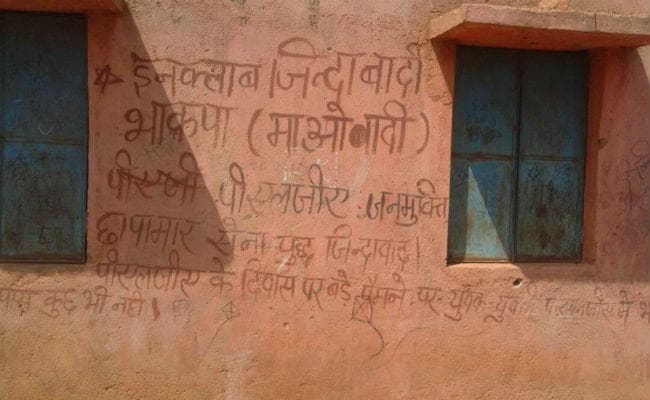 इनक्लाब जिन्दाबादी
भाकपा (माओबादी)
पीएलजी पीएलजीए जनमुक्ति
छापामार सेना युद्ध जिन्दावाद।
पीएलजीए के दिवस पर बड़े पैमाने पर युवक युवती पीएलजीए मे भ
कुछ भी नही।